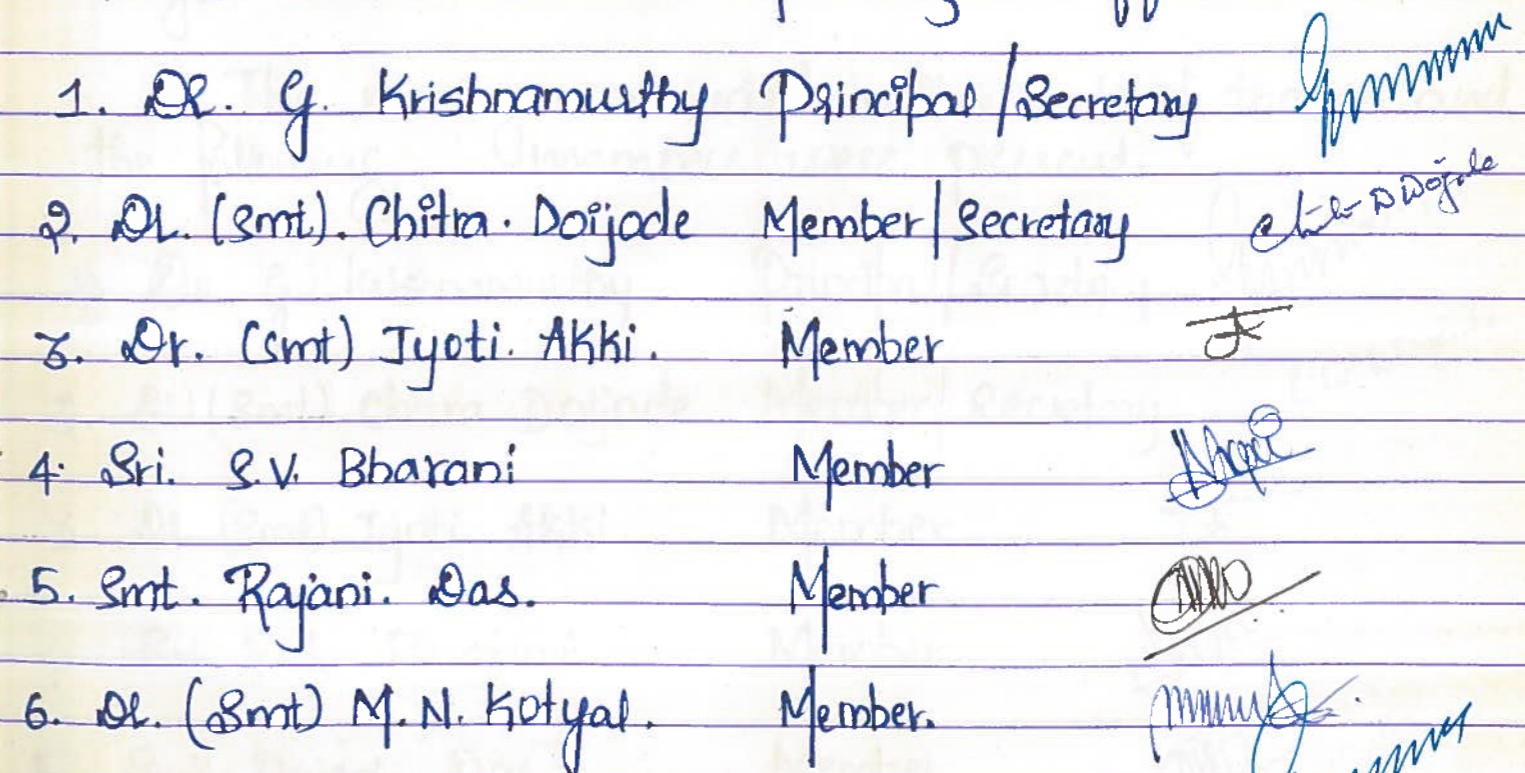 1. Dr. G. Krishnamurthy Principal/Secretary
2. Dr. (Smt). Chitra. Doijode Member/Secretary
3. Dr. (Smt) Jyoti. Akki. Member
4. Sri. S.V. Bharani Member
5. Smt. Rajani. Das. Member
6. Dr. (Smt) M.N. Kotyal. Member.